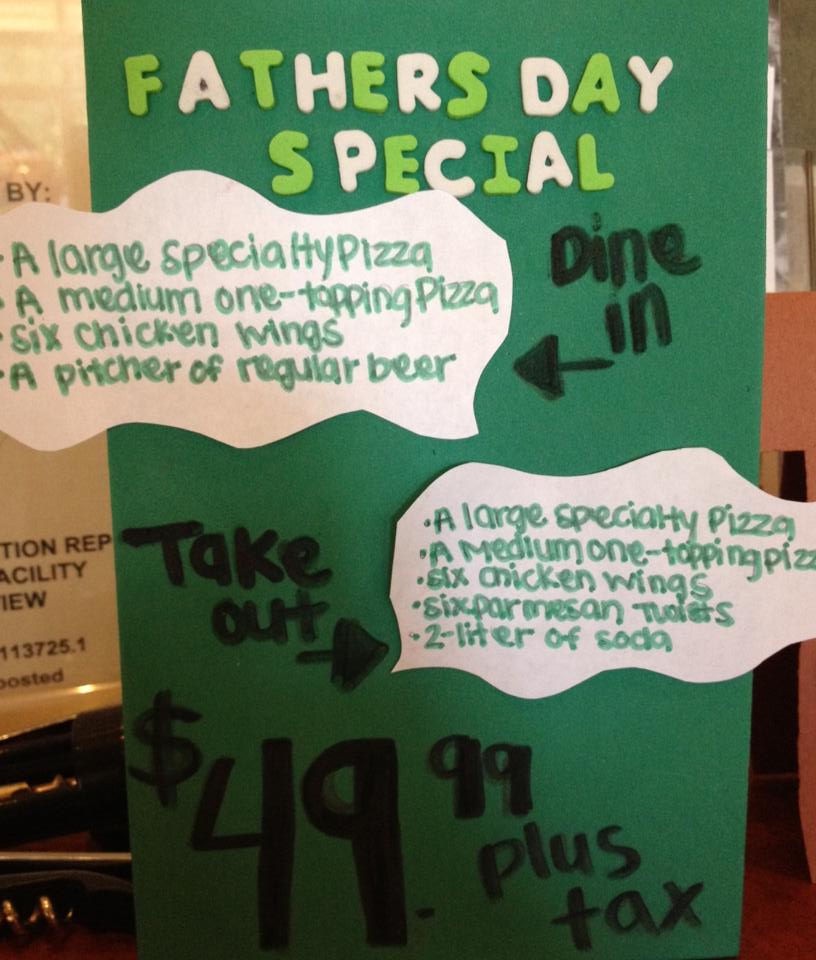 FATHERS DAY
SPECIAL
BY:
· A large specialty Pizza
· A medium one-topping Pizza
· six chicken wings
· A pitcher of regular beer
Dine
in
· A large specialty Pizza
· A Medium one-topping pizz
· six chicken wings
· six parmesan Twists
· 2-liter of soda
Take
out
TION REP
ACILITY
IEW
113725.1
posted
$49.99
plus
tax